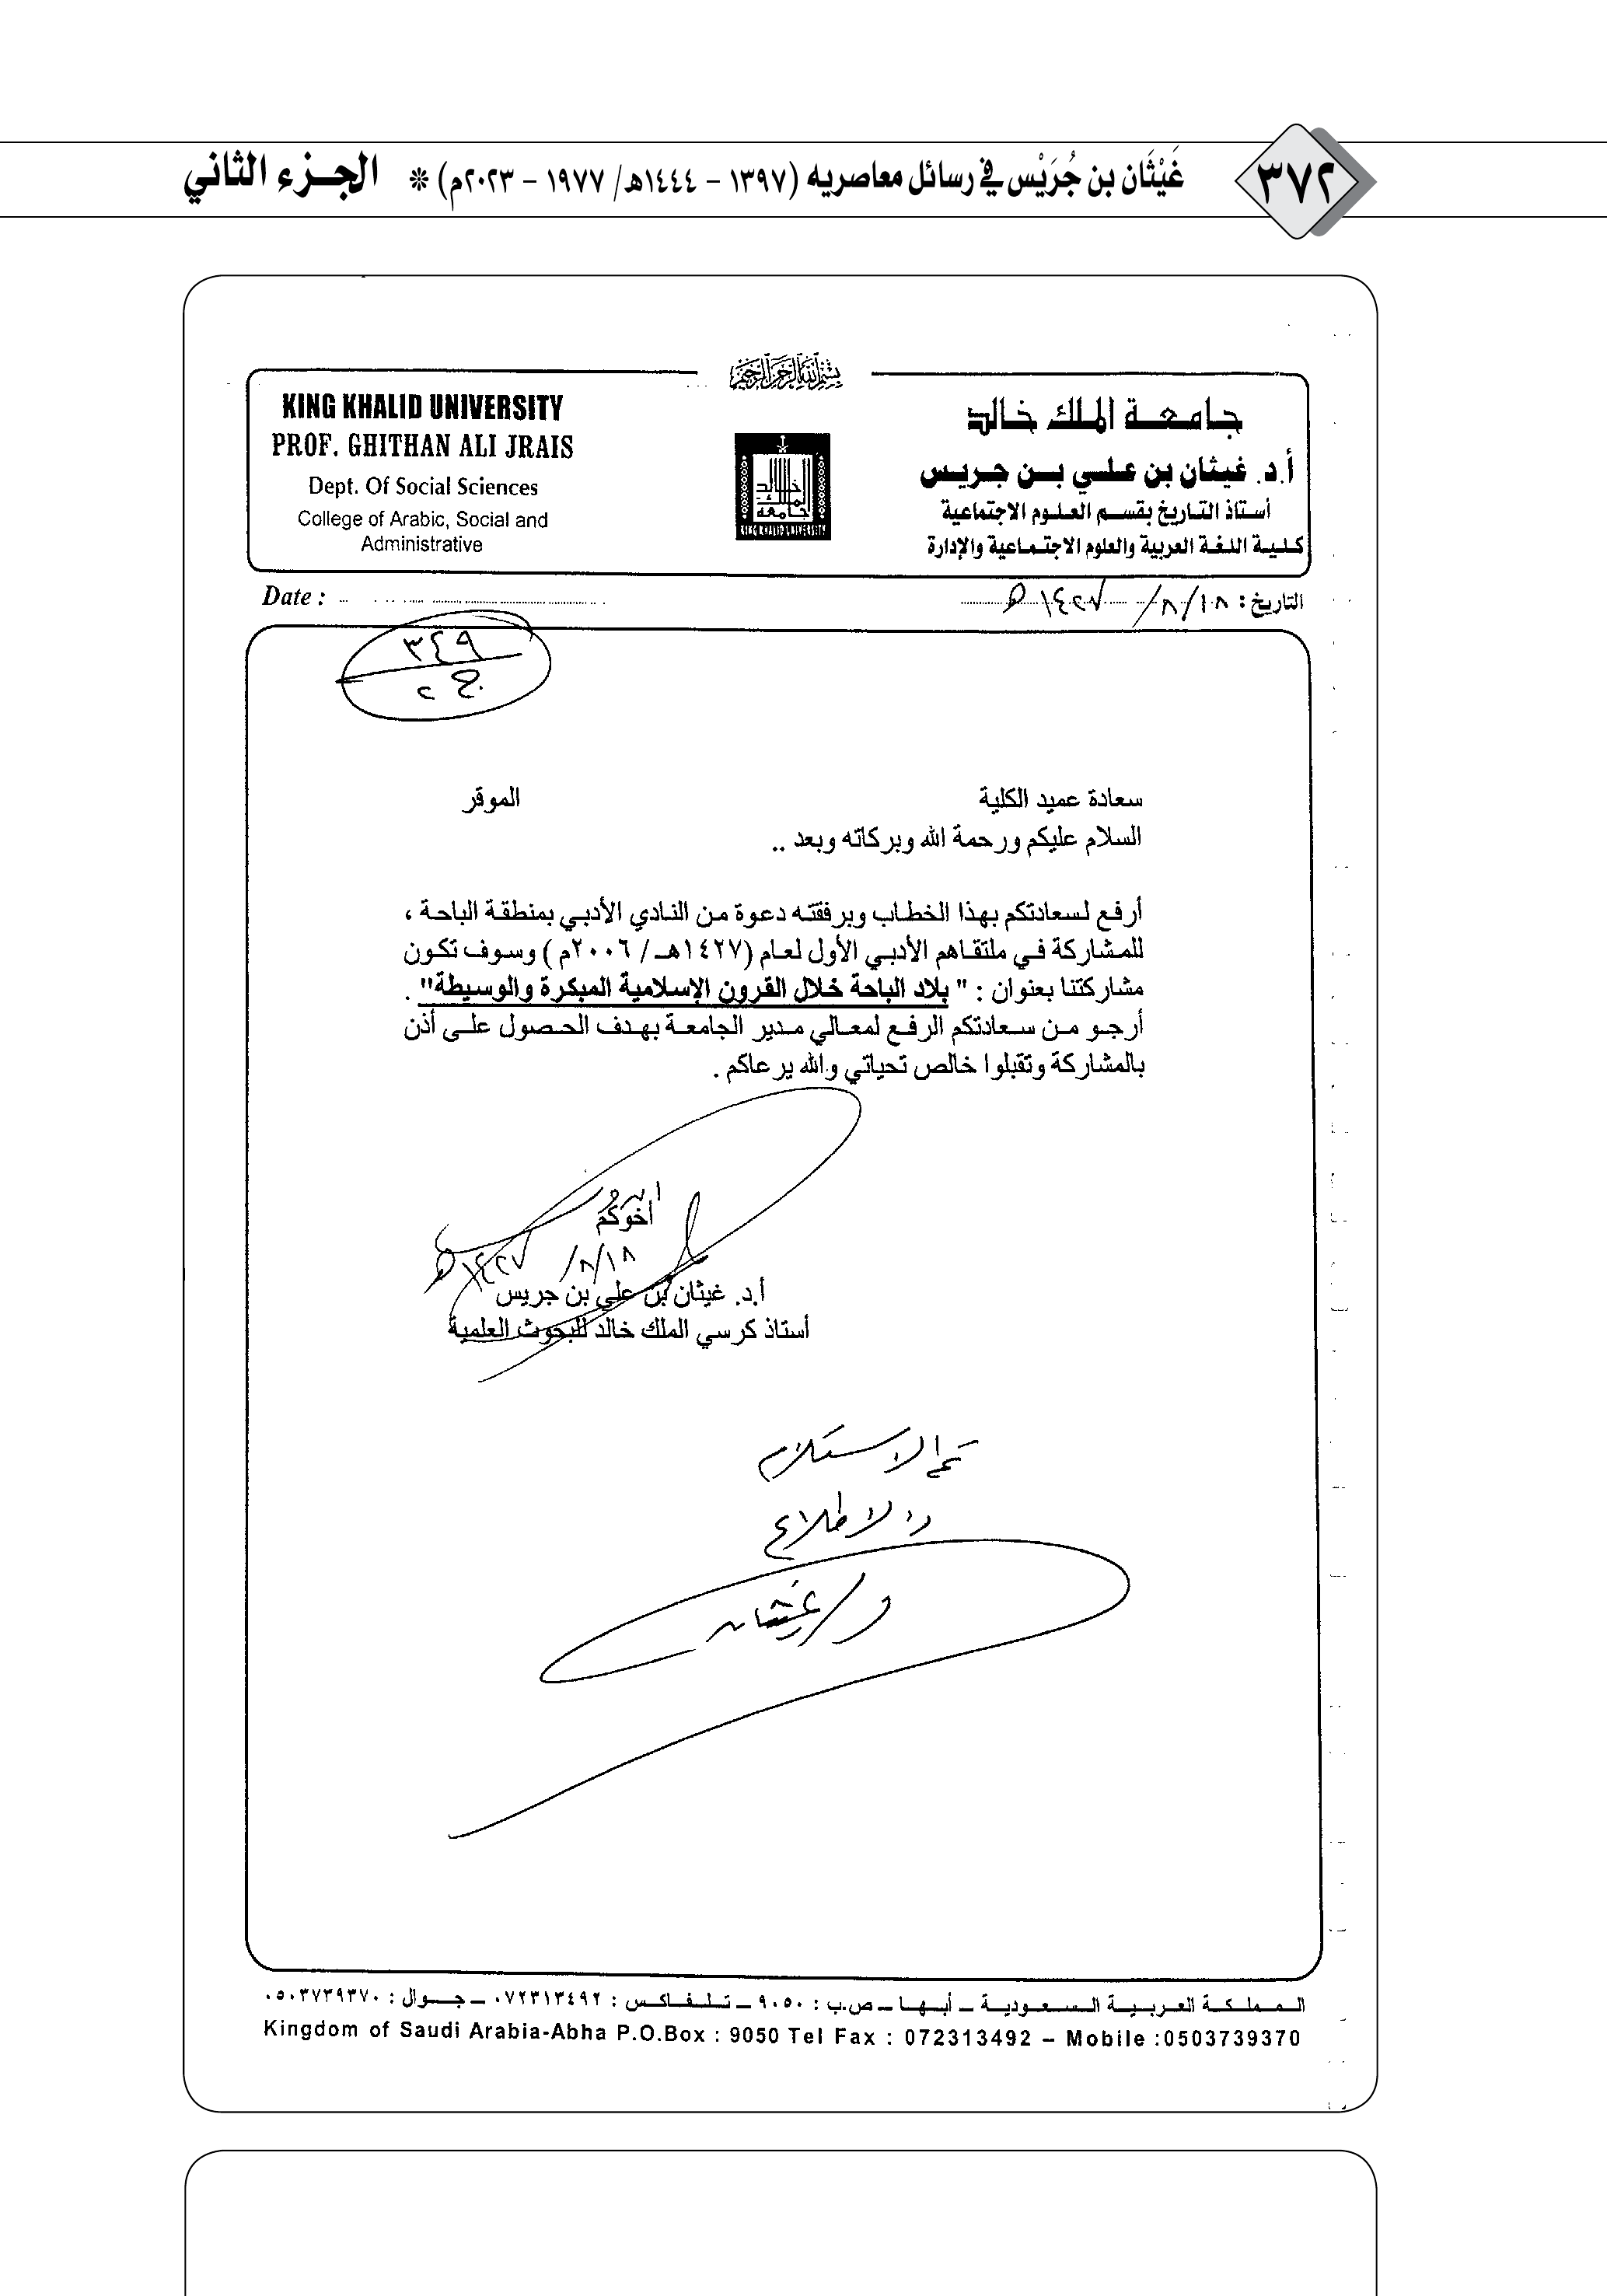 ٣٧٢
غَيْثَان بن جُرَيْس في رسائل معاصريه (١٣٩٧ - ١٤٤٤هـ/ ١٩٧٧ - ٢٠٢٣م) * الجزء الثاني
بسم الله الرحمن الرحيم
جامعة الملك خالد
أ.د. غيثان بن علي بن جريس
أستاذ التاريخ بقسم العلوم الاجتماعية
كلية اللغة العربية والعلوم الاجتماعية والإدارة
خالد
الملك
جامعة
KING KHALID UNIVERSITY
KING KHALID UNIVERSITY
PROF. GHITHAN ALI JRAIS
Dept. Of Social Sciences
College of Arabic, Social and
Administrative
التاريخ : ١٨/٨/١٤٢٧هـ
Date :
٣٤٩
ج٢
سعادة عميد الكلية الموقر
السلام عليكم ورحمة الله وبركاته وبعد ..
أرفع لسعادتكم بهذا الخطاب وبرفقته دعوة من النادي الأدبي بمنطقة الباحة ،
للمشاركة في ملتقاهم الأدبي الأول لعام (١٤٢٧هـ / ٢٠٠٦م ) وسوف تكون
مشاركتنا بعنوان : " بلاد الباحة خلال القرون الإسلامية المبكرة والوسيطة" .
أرجو من سعادتكم الرفع لمعالي مدير الجامعة بهدف الحصول على أذن
بالمشاركة وتقبلوا خالص تحياتي والله يرعاكم .
أخوكم
١٨/٨/١٤٢٧هـ
أ.د. غيثان بن علي بن جريس
أستاذ كرسي الملك خالد للبحوث العلمية
تم الاستلام
والاطلاع
د/ غيثان
المملكة العربية السعودية ـ أبها ـ ص.ب : ٩٠٥٠ ـ تلفاكس : ٠٧٢٣١٣٤٩٢ ـ جوال : ٠٥٠٣٧٣٩٣٧٠
Kingdom of Saudi Arabia-Abha P.O.Box : 9050 Tel Fax : 072313492 – Mobile :0503739370